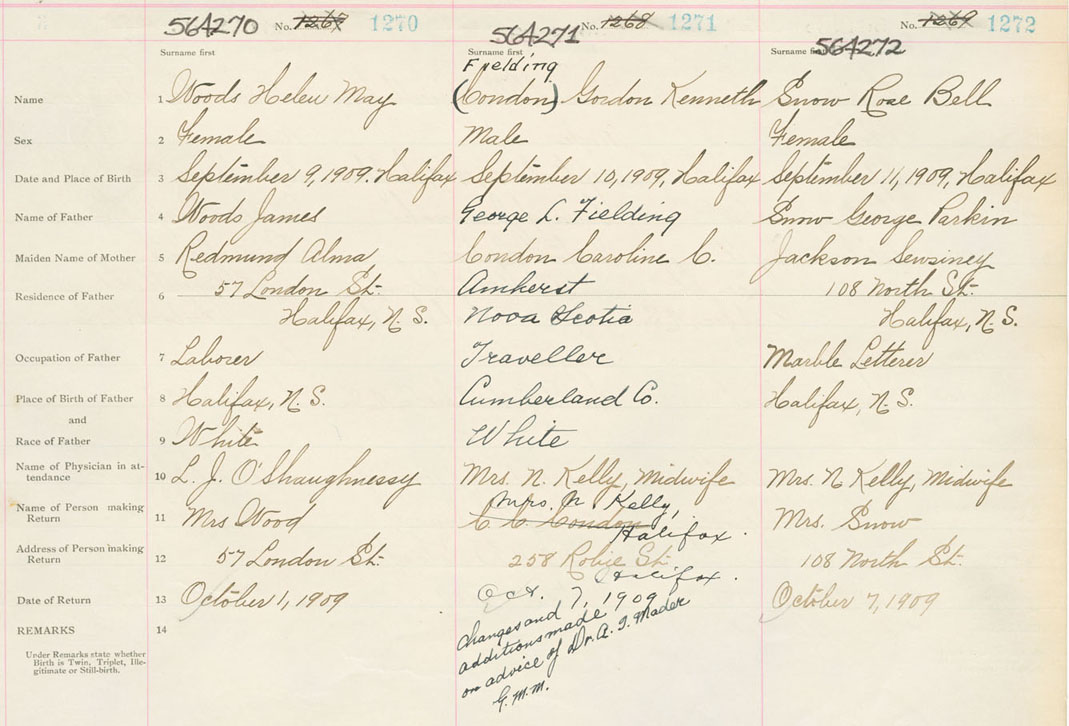 564270 No. 1267 1270 564271 No. 1268 1271 564272 No. 1269 1272
Surname first Surname first Surname first
Fielding
Name 1 Woods Helen May (London) Gordon Kenneth Snow Rose Bell
Sex 2 Female Male Female
Date and Place of Birth 3 September 9, 1909. Halifax September 10, 1909, Halifax September 11, 1909, Halifax
Name of Father 4 Woods James George L. Fielding Snow George Parkin
Maiden Name of Mother 5 Redmund Alma London Caroline C. Jackson
Residence of Father 6 57 London St. Amherst 108 North St.
Halifax, N. S. Nova Scotia Halifax, N. S.
Occupation of Father 7 Laborer Traveller Marble Letterer
Place of Birth of Father 8 Halifax, N. S. Cumberland Co. Halifax, N. S.
and
Race of Father 9 White White
Name of Physician in at-
tendance 10 L. J. O'Shaughnessy Mrs. N. Kelly, Midwife Mrs. N Kelly, Midwife
Name of Person making Mrs. N Kelly,
Return 11 Mrs Wood C. C. London Mrs. Snow
Halifax.
Address of Person making
Return 12 57 London St. 258 Robie St. 108 North St.
Halifax.
Date of Return 13 October 1, 1909 Oct. 7, 1909 October 7, 1909
REMARKS 14
Under Remarks state whether
Birth is Twin, Triplet, Ille-
gitimate or Still-birth.
Changes and
additions made
on advice of Dr. A. I. Mader
G. M. M.